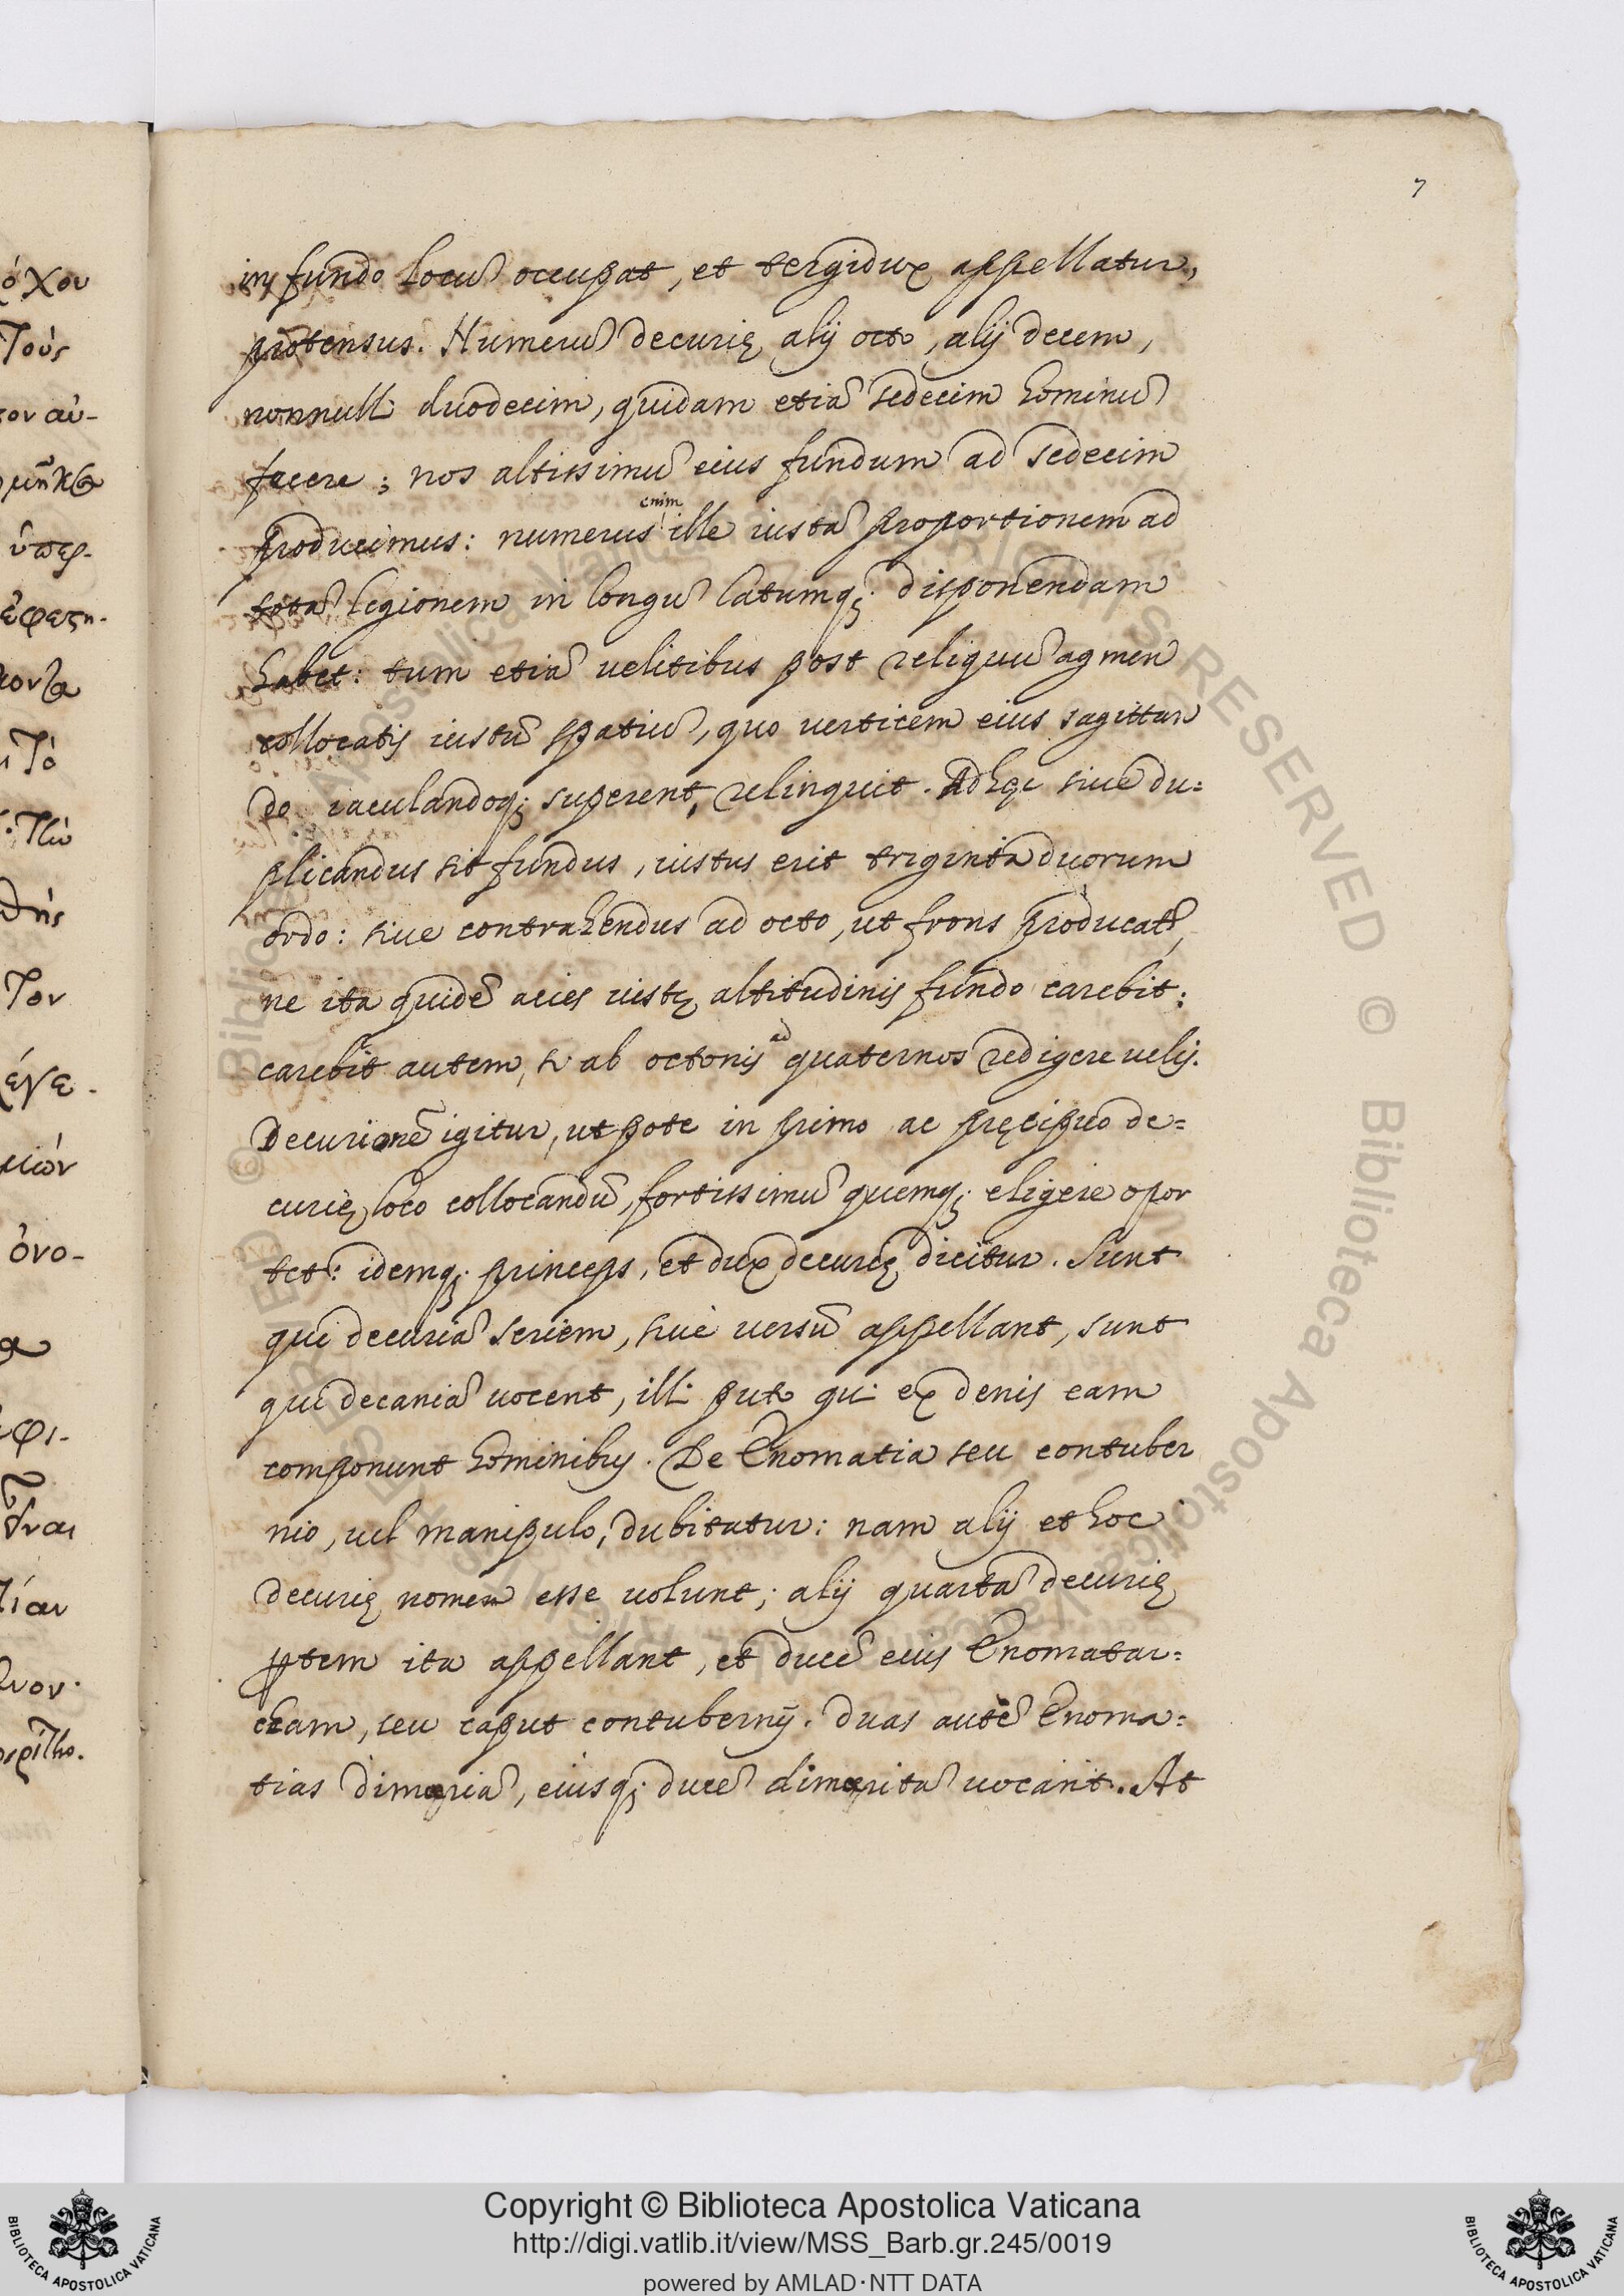 7
in fundo locũ occupat, et tergidux appellatur,
protensus. Numerũ decurię alij octo, alij decem,
nonnulli duodecim, quidam etiã sedecim hominũ
fecere; nos altissimũ eius fundum ad sedecim
enim
producimus: numerus ille iustã proportionem ad
totã legionem in longũ latumq; disponendam
habet: tum etiã uelitibus post reliquũ agmen
collocatis iustũ spatiũ, quo uerticem eius sagittan
do iaculandoq; superent, relinquit. Adhęc siue du=
plicandus sit fundus, iustus erit triginta duorum
ordo: siue contrahendus ad octo, ut frons producat᷑,
ne ita quidẽ acies iustę altitudinis fundo carebit:
ad
carebit autem, si ab octonis quaternos redigere uelis.
Decurionẽ igitur, utpote in primo ac pręcipuo de=
curię loco collocandũ, fortissimũ quemq; eligere opor
tet: idemq; princeps, et dux decurię dicitur. Sunt
qui decuriã seriem, siue uersũ appellant, sunt
qui decaniã uocent, illi puto qui ex denis eam
componunt hominibus. De Enomatia seu contuber
nio, uel manipulo, dubitatur: nam alij et hoc
decurię nomen esse uolunt; alij quartã decurię
ꝑtem ita appellant, et ducẽ eius Enomatar=
cham, seu caput contubernij. Duas autẽ Enoma=
tias dimœriã, eiusq; ducẽ dimœritã uocant. At
όχου
Τούς
υπερ-
Τὸ
Τον
ένε-
ὀνο-
φι-
Copyright © Biblioteca Apostolica Vaticana
http://digi.vatlib.it/view/MSS_Barb.gr.245/0019
powered by AMLAD·NTT DATA
BIBLIOTECA APOSTOLICA VATICANA
BIBLIOTECA APOSTOLICA VATICANA